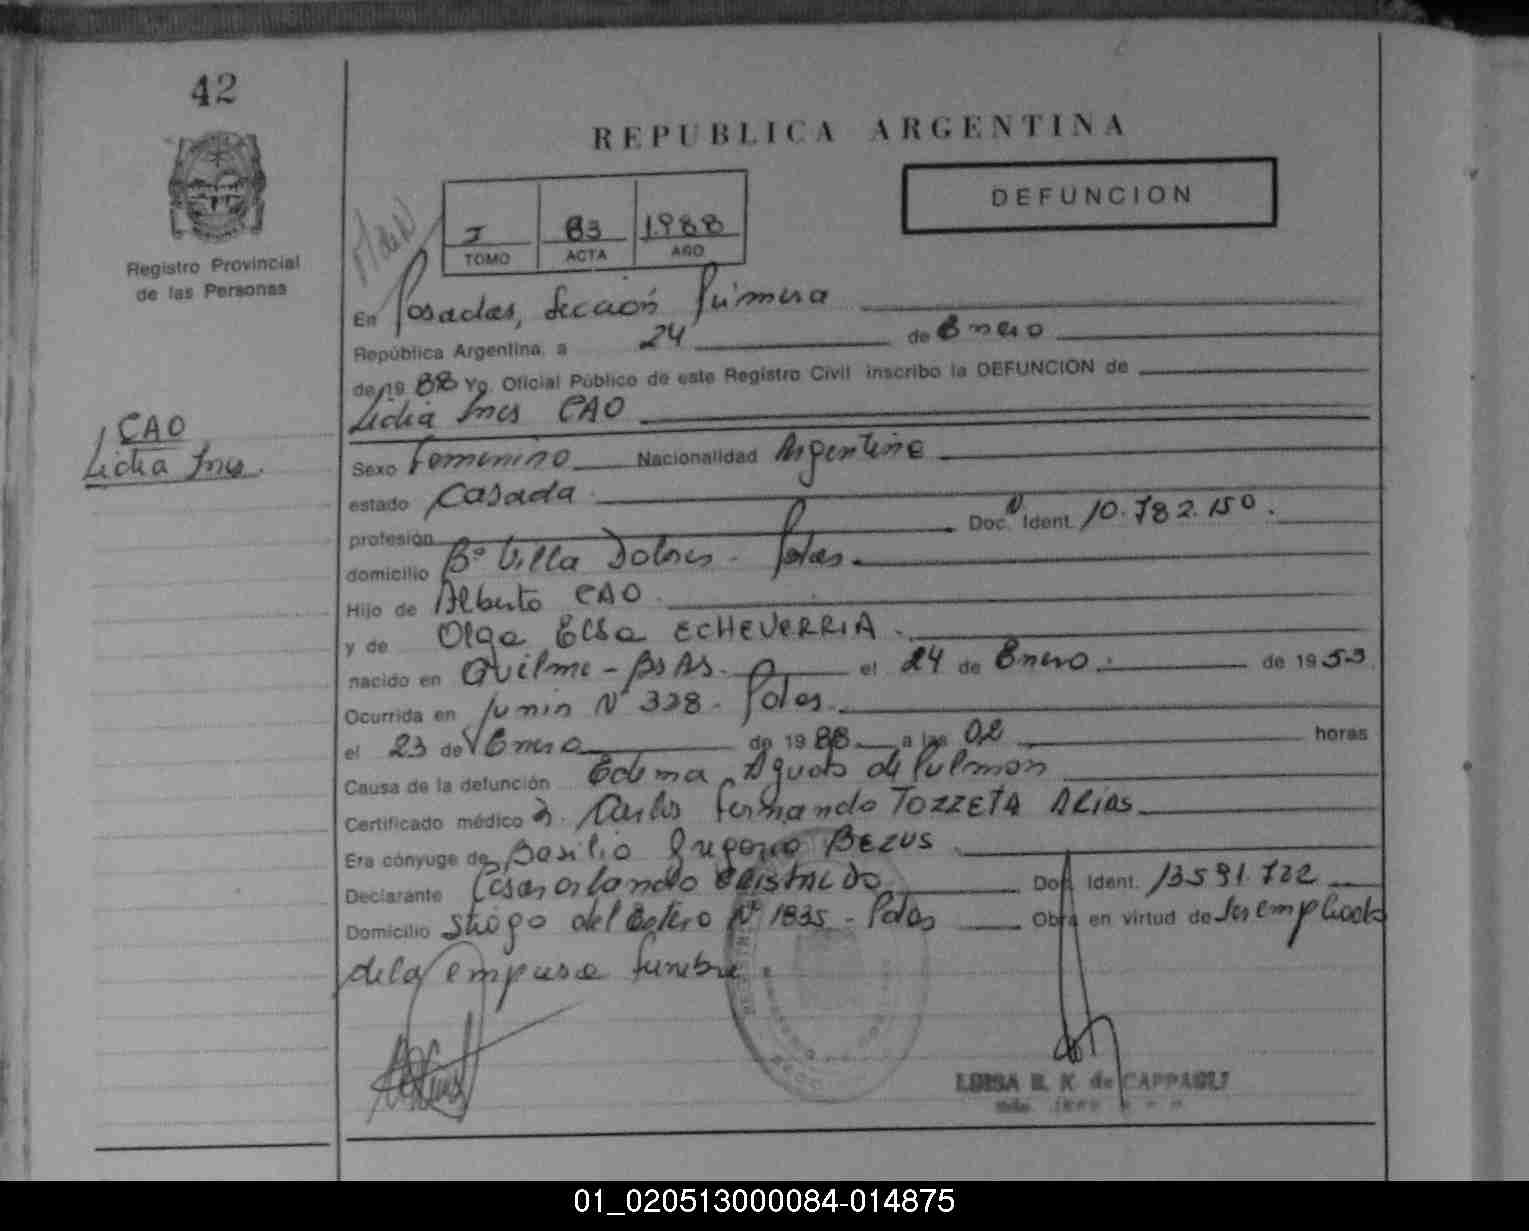 42
REPUBLICA ARGENTINA
DEFUNCION
I 83 1.988
TOMO ACTA AÑO
Registro Provincial
de las Personas
En Posadas, Sección Primera
República Argentina, a 24 de Enero
de 19 88 Yo, Oficial Público de este Registro Civil inscribo la DEFUNCION de
Lidia Ines CAO
CAO
Lidia Ines.
Sexo Femenino Nacionalidad Argentina
estado Casada.
profesión Doc. Ident. 10.782.150.
domicilio Bº Villa Dolores - Pdas.
Hijo de Alberto CAO.
y de Olga Elsa ECHEVERRIA.
nacido en Quilme - Bs As. el 24 de Enero. de 1953.
Ocurrida en Junin Nº 328 - Pdas.
el 23 de Enero de 1988 a las 02 horas
Causa de la defunción Edema Agudo de Pulmon
Certificado médico Carlos Fernando TOZZETA ARIAS
Era cónyuge de Basilio Gregorio BEZUS
Declarante Cesar Orlando
Doc. Ident. 13591.722
Domicilio Stiago del Estero Nº 1835 - Pdas Obra en virtud de Ser empleado
de la empresa funebre.
LUISA E. K. de CAPPAGLI
01_020513000084-014875